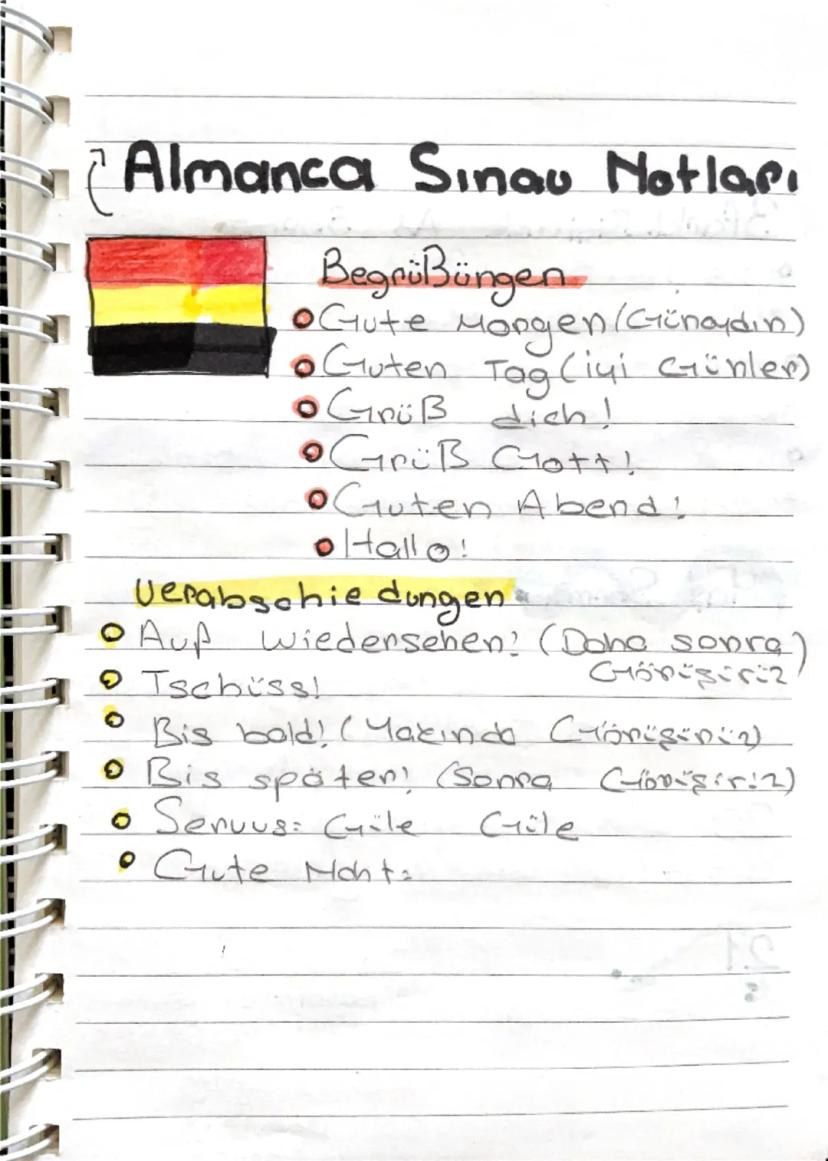 Almanca Sınav Notları
Begrüßüngen
Gute Morgen (Günaydın)
Guten Tag (iyi Günler)
Grüß dich!
Grüß Gott!
Guten Abend!
Hallo!
Verabschiedungen
Auf Wiedersehen! (Daha sonra)
Görüşürüz
Tschüss!
Bis bald! (Yakında Görüşürüz)
Bis später! (Sonra Görüşürüz)
Servus: Güle Güle
Gute Naht: